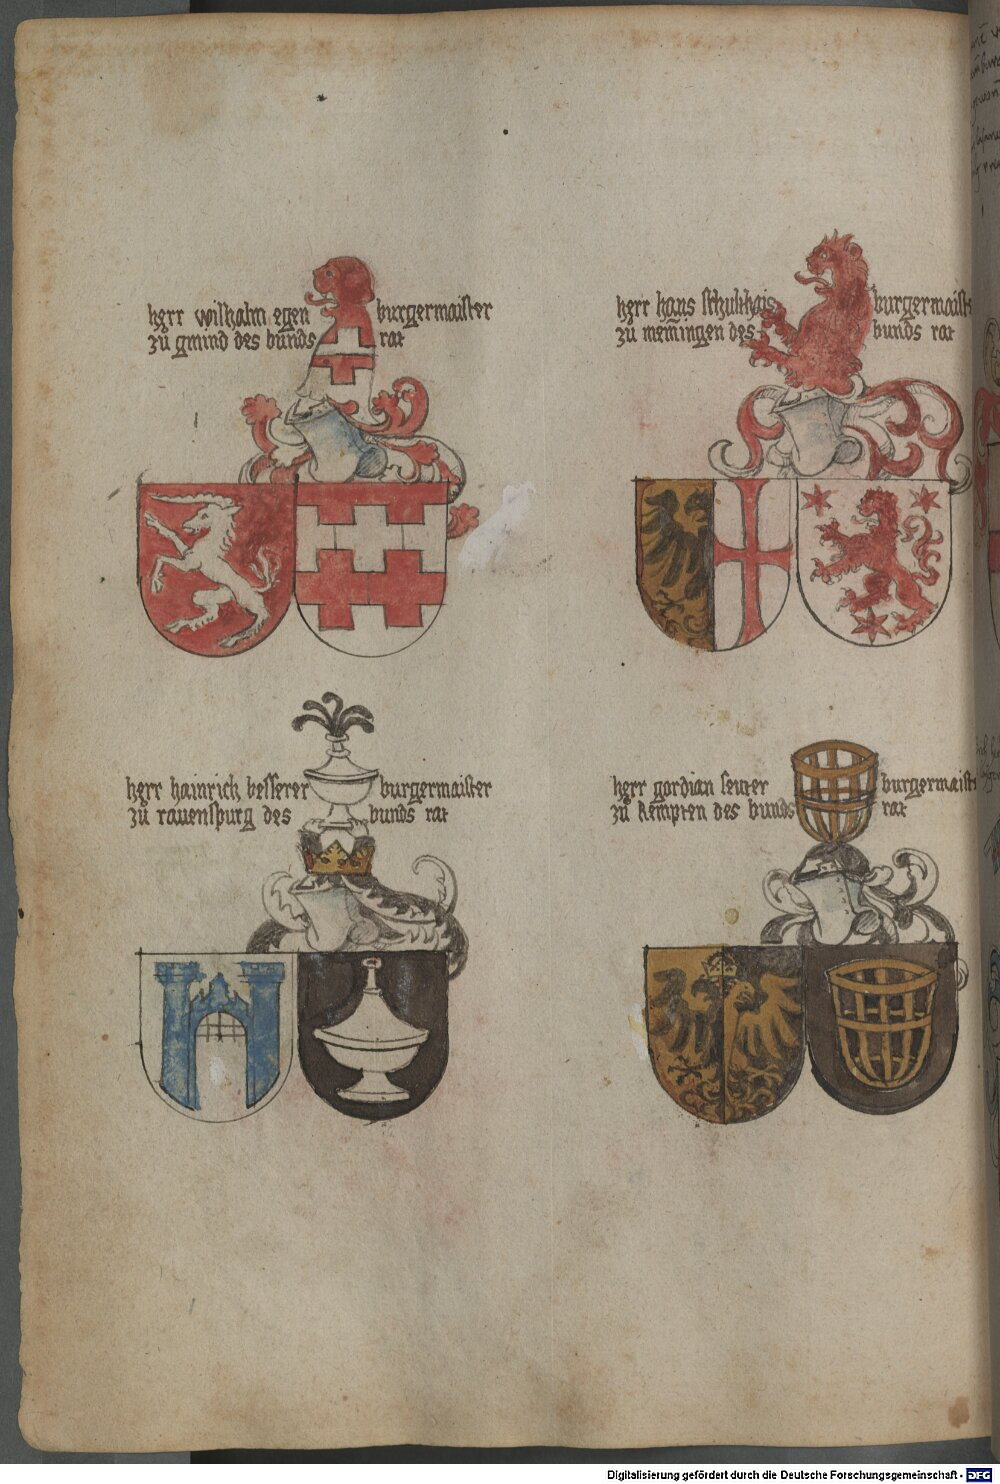 herr wilhalm egen burgermaister
zü gmind des bunds rat
herr hans sthulthais burgermaist
zü memingen des bunds rat
herr hainrich besserer burgermaister
zü rauenspurg des bunds rat
herr gordian seuter burgermaist
zü kempten des bunds rat
Digitalisierung gefördert durch die Deutsche Forschungsgemeinschaft - DFG